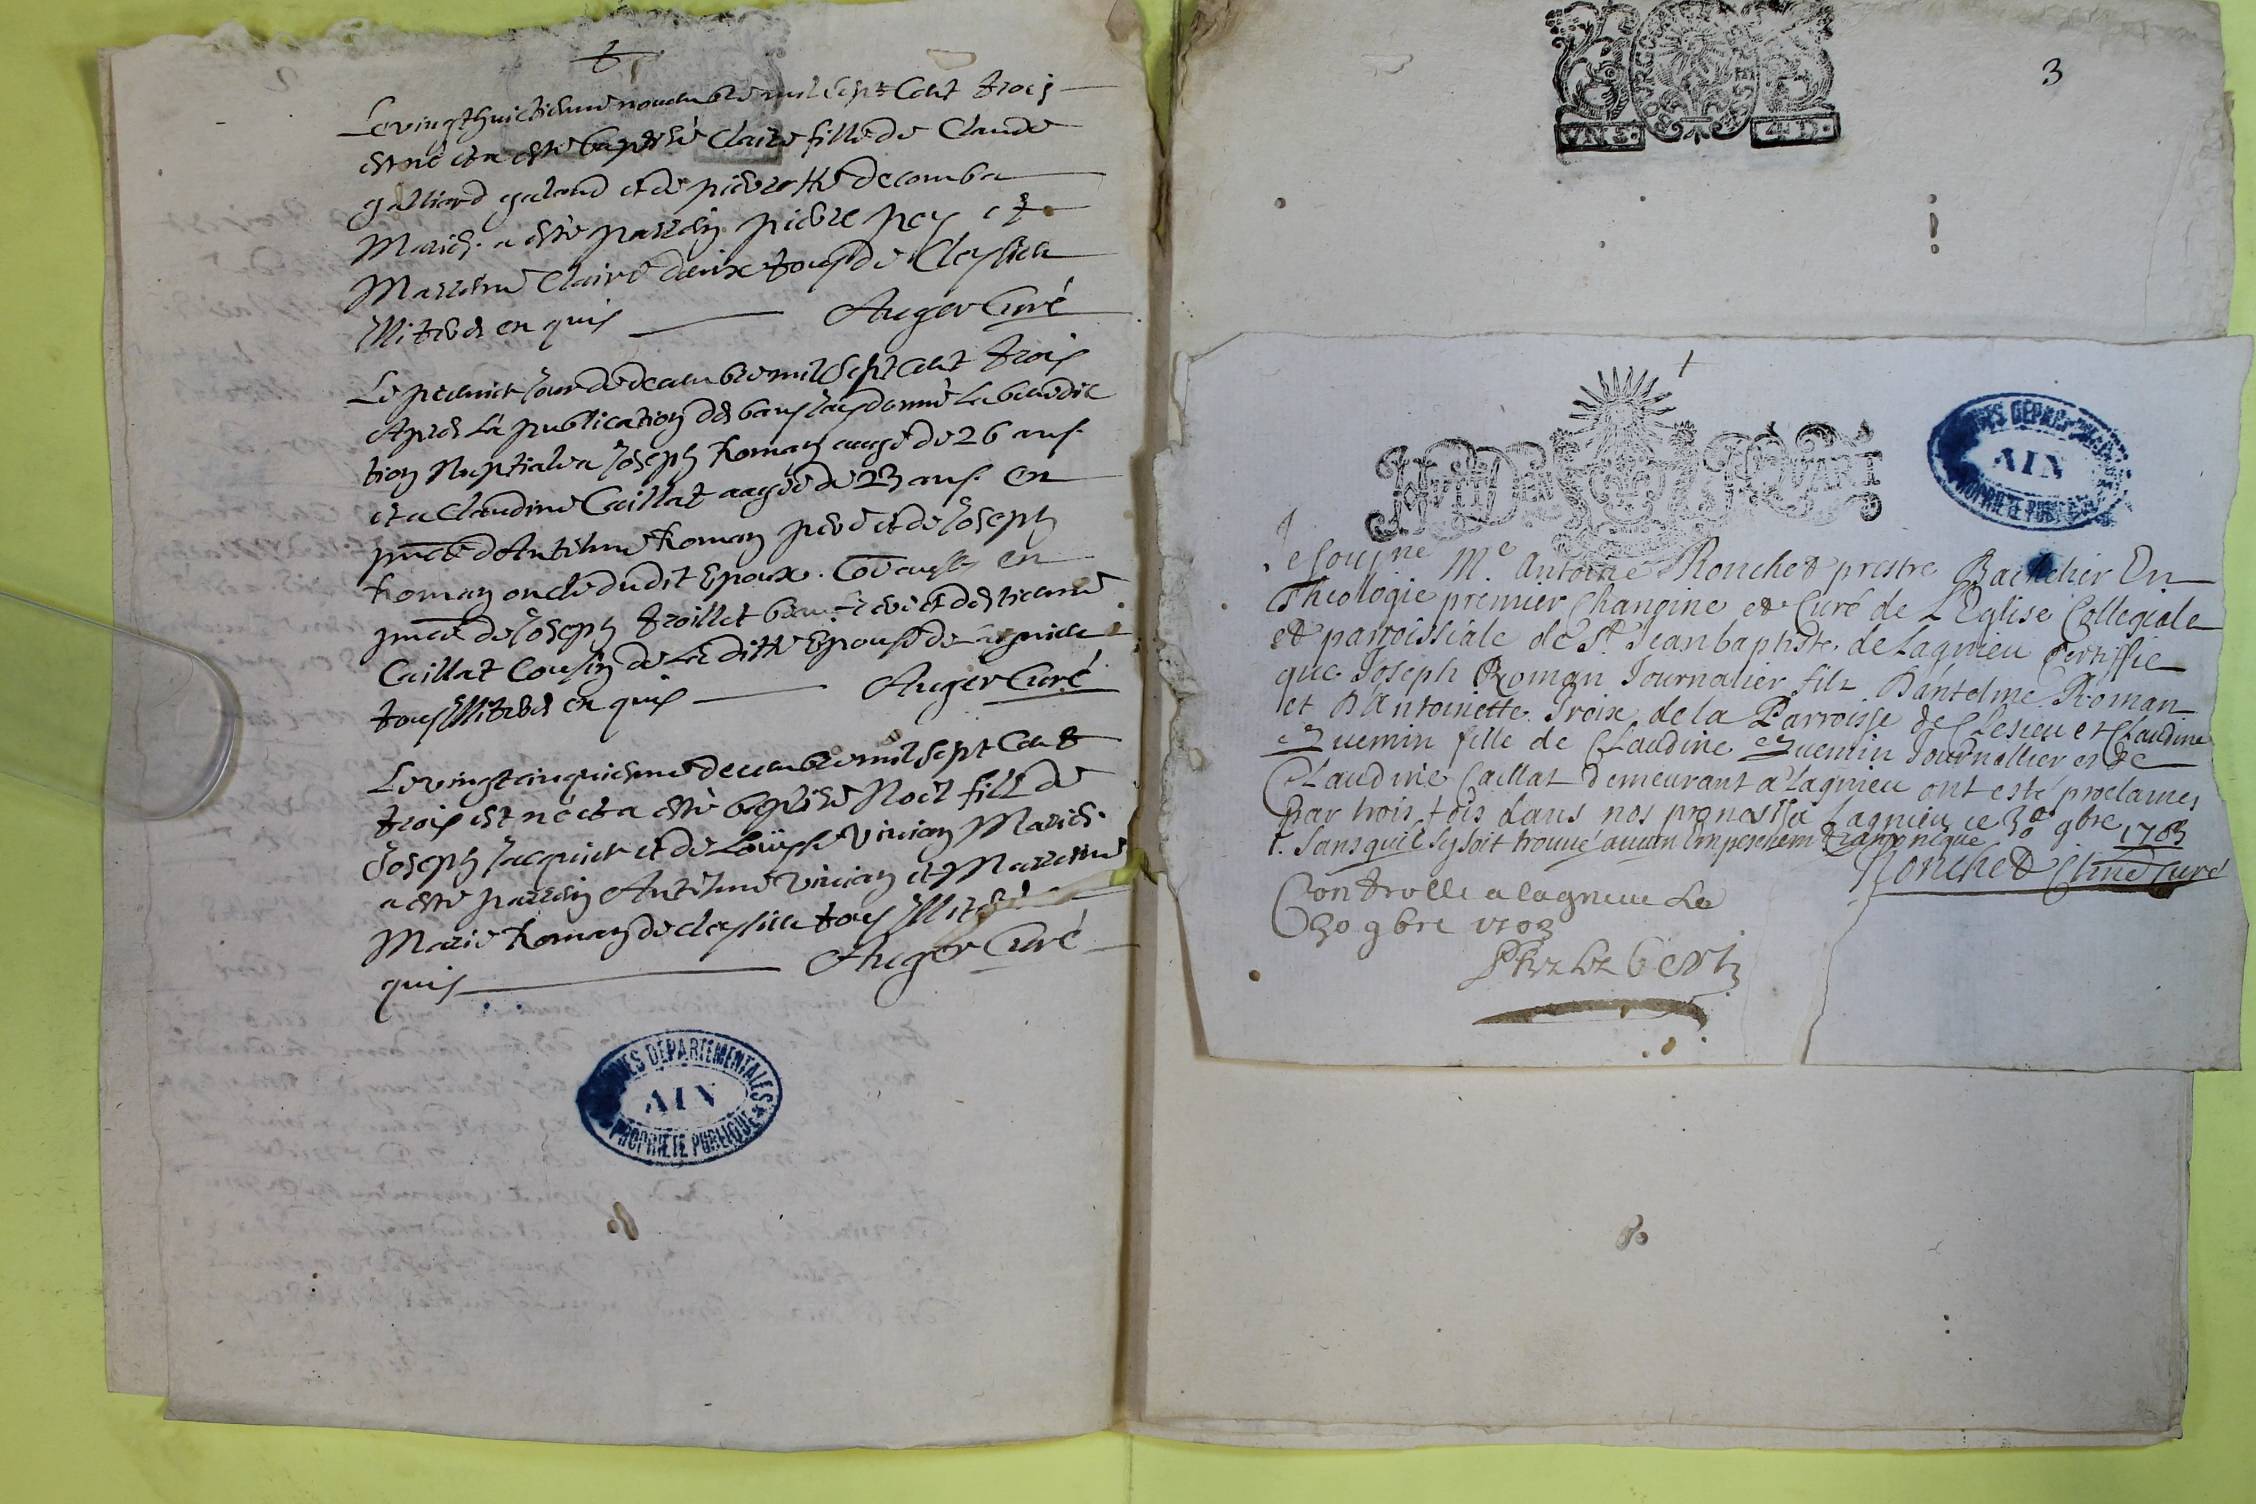 Le vingthuictieme novembre mil sept Cent trois
est né et a esté baptisé Claire fille de Claude
galliard galand et de pierrette decomba
Mariés. a esté parrein pierre pey et
Marrene Claire daux tous de Cleysieu
Mitrés en quis Auger Curé
Le premier Jour de decembre mil sept cent trois
Apres La publication des bans Jay donné La benedic
tion Nuptiale a Joseph Roman aagé de 26 ans.
et a Claudine Caillat aagée de 23 ans. en
pnce d'Antelme Roman pere et de Joseph
Roman oncle dudit Epoux. Et en
pnce de Joseph troillet et destienne
Caillat Cousin de La ditte Epouse de Lagnieu
tous Mitrés en quis Auger Curé
Le vingt cinquieme decembre mil sept Cent
trois est né et a esté baptisé Noel fils de
Joseph Jacquier et de Louyse Vivian Mariés.
a esté parrein Antelme Vivian et Marrene
Marie Roman de cleysieu tous Mitrés
quis Auger Curé
ARCHIVES DEPARTEMENTALES
AIN
PROPRIETE PUBLIQUE
3
VN S. 4 D.
HVIT DEN
ARCHIVES DEPARTEMENTALES
AIN
PROPRIETE PUBLIQUE
Je Sousne Me. Antoine Ronchet prestre Bachelier En
Theologie premier Chanoine et Curé de L'Eglise Collegiale
et parroissiale de St. Jean baptiste de Lagnieu Certiffie
que Joseph Roman Journalier fils D'antelme Roman
et D'Antoinette Troix de la Parroisse de Clesieu et Claudine
Quemin fille de Claudine Quemin Journallier et de
Claudine Caillat demeurant a Lagnieu ont esté proclamés
par trois fois dans nos prones a Lagnieu ce 30e 9bre 1703
Sans quil sy soit trouvé aucun Empechem canonique
Ronchet Curé
Controllé a lagnieu Le
30 9bre 1703